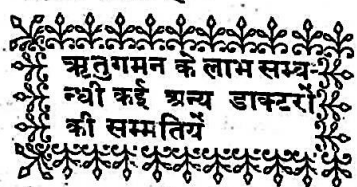 ऋतुगमन के लाभ सम्ब-
न्धी कई अन्य डाक्टरों
की सम्मतियें